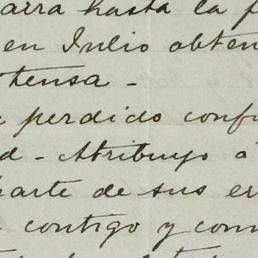 arra hasta la f
en Julio obten
tensa -
perdido conf
d - Atribuyo á
parte de sus er
contigo y com